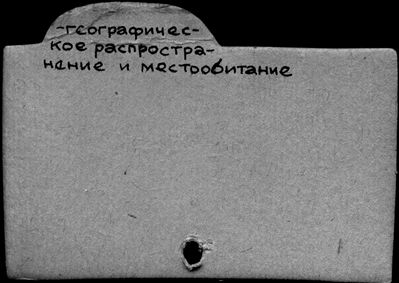 -географичес-
кое распростра-
нение и местообитание